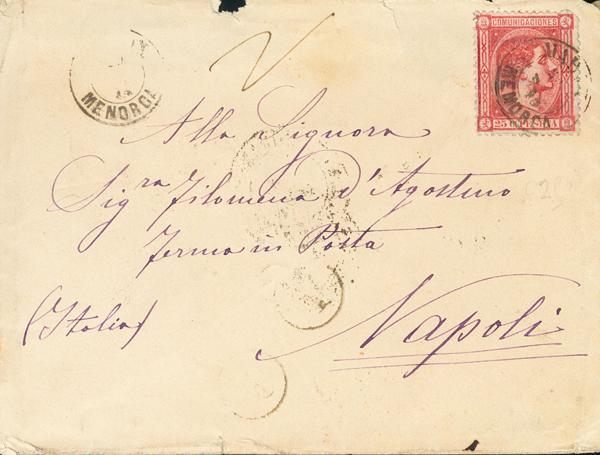 COMUNICACIONES
MENORCA
25 PESETA
MENORCA
Alla Signora
Sig.ra Filomena d'Agostino
ferma in Posta
(Italia)
Napoli